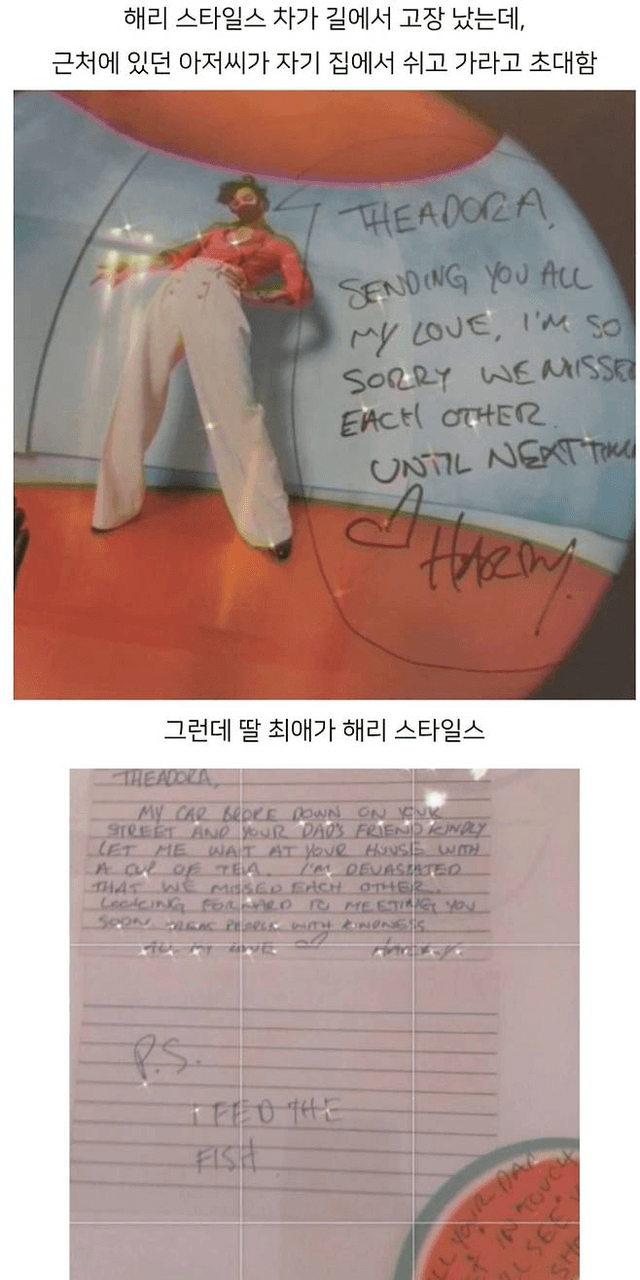 해리 스타일스 차가 길에서 고장 났는데,
근처에 있던 아저씨가 자기 집에서 쉬고 가라고 초대함
THEADORA,
SENDING YOU ALL
MY LOVE, I'M SO
SORRY WE MISSED
EACH OTHER.
UNTIL NEXT TIME
HARRY.
그런데 딸 최애가 해리 스타일스
THEADORA,
MY CAR BROKE DOWN ON YOUR
STREET AND YOUR DAD'S FRIEND KINDLY
LET ME WAIT AT YOUR HOUSE WITH
A CUP OF TEA. I'M DEVASTATED
THAT WE MISSED EACH OTHER.
LOOKING FORWARD TO MEETING YOU
SOON. TREAT PEOPLE WITH KINDNESS
ALL MY LOVE
P.S.
I FED THE
FISH
YOUR DAD
IN TOUCH
SEE